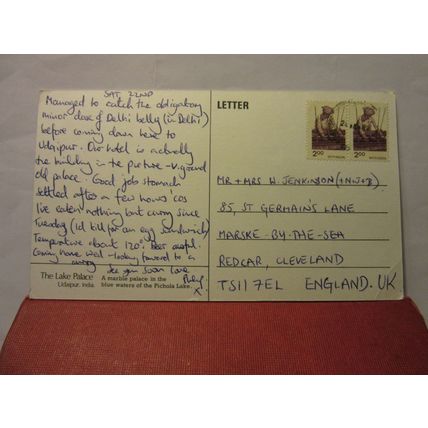 SAT, 22ND
Managed to catch the obligatory
minor dose of Delhi belly (in Delhi)
before coming down here to
Udaipur. Our hotel is actually
the building in the picture - v. grand
old palace. Good job stomach
settled after a few hours 'cos
I've eaten nothing but curry since
Tuesday (I'd kill for an egg sandwich)
Temperature about 120°: beer awful.
Coming home Wed - looking forward to a
See you soon Love
X
The Lake Palace
Udaipur, India
A marble palace in the
blue waters of the Pichola Lake.
LETTER
2.00
2.00
MR + MRS W. JENKINSON
85, ST GERMAIN'S LANE
MARSKE-BY-THE-SEA
REDCAR, CLEVELAND
TS11 7EL ENGLAND. UK